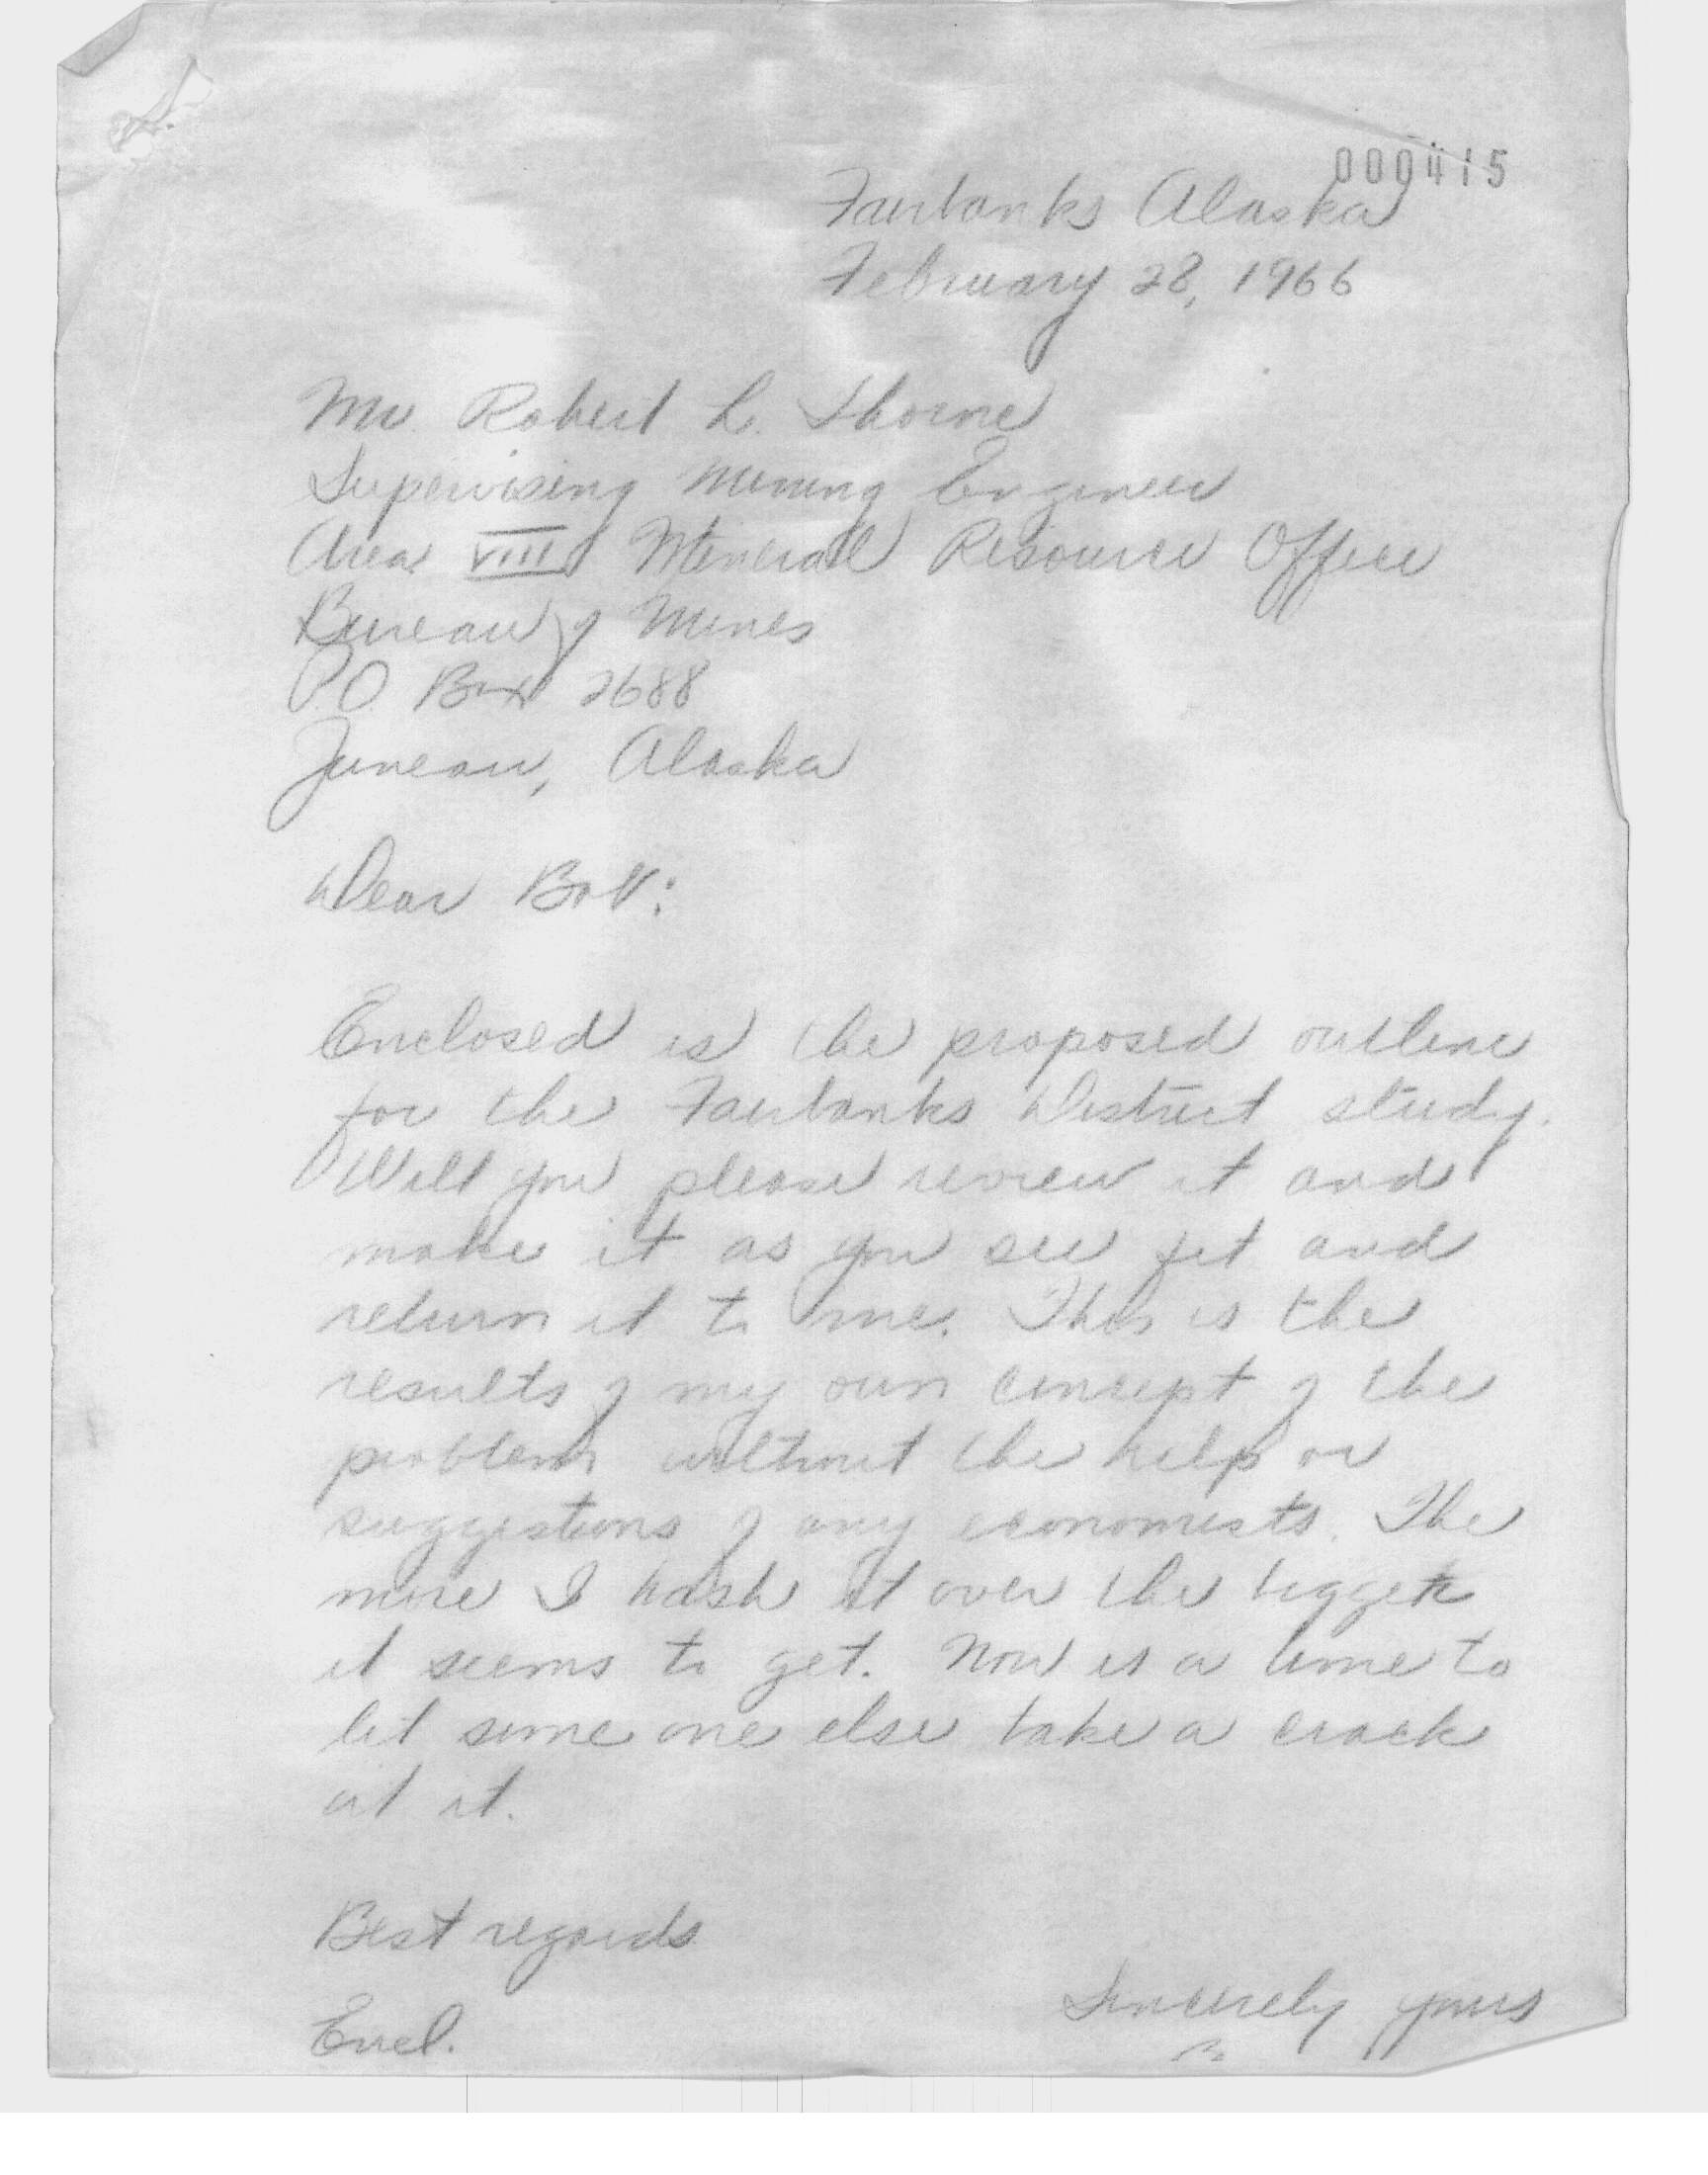 000415
Fairbanks Alaska
February 28, 1966
Mr. Robert L. Thorne
Supervising Mining Engineer
Area VIII Mineral Resource Office
Bureau of Mines
P.O. Box 2688
Juneau, Alaska
Dear Bob:
Enclosed is the proposed outline
for the Fairbanks District study.
Will you please review it and
make it as you see fit and
return it to me. This is the
results of my own concept of the
problem without the help or
suggestions of any economists. The
more I hash it over the bigger
it seems to get. Now is a time to
let some one else take a crack
at it.
Best regards
Sincerely yours
Encl.